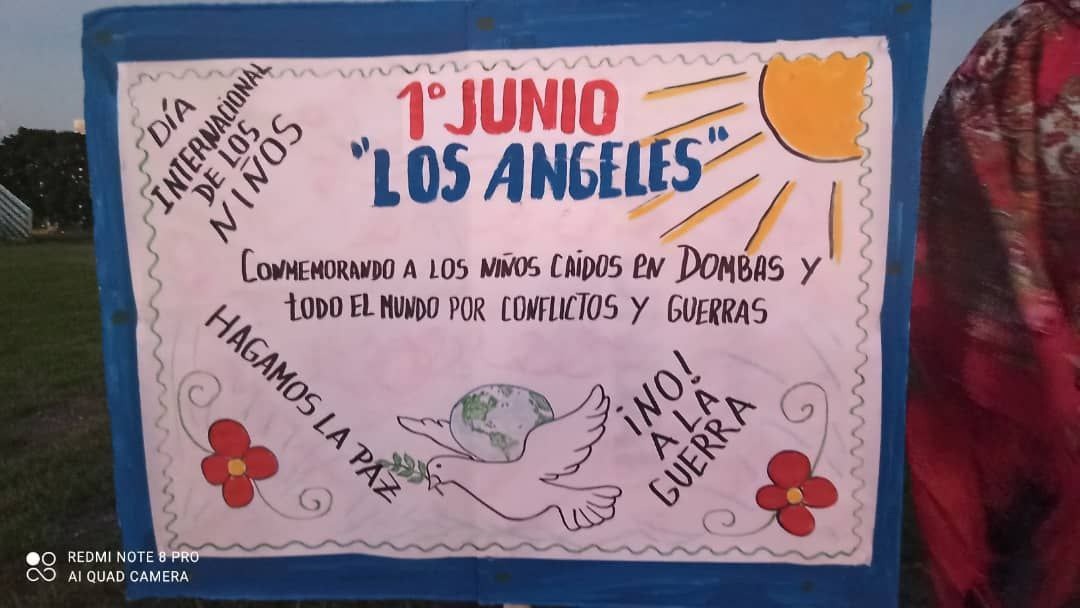 DÍA
INTERNACIONAL
DE LOS
NIÑOS
1º JUNIO
"LOS ANGELES"
CONMEMORANDO A LOS NIÑOS CAIDOS EN DOMBAS Y
TODO EL MUNDO POR CONFLICTOS Y GUERRAS
HAGAMOS LA PAZ
¡NO!
A LA
GUERRA
REDMI NOTE 8 PRO
AI QUAD CAMERA